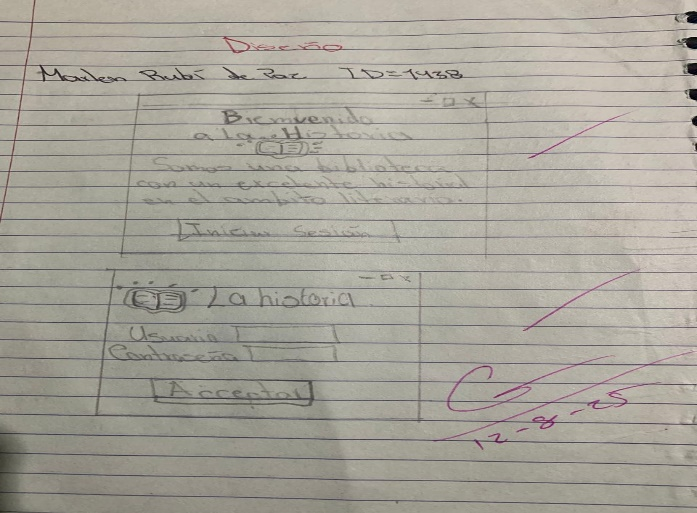 Diseño
Marlen Rubí de Paz ID=1438
- □ x
Bienvenido
a La Historia
Somos una biblioteca
con un excelente historial
en el ambito literario.
Iniciar Sesión
- □ x
La historia
Usuario
Contraseña
Acceptar
12-8-25